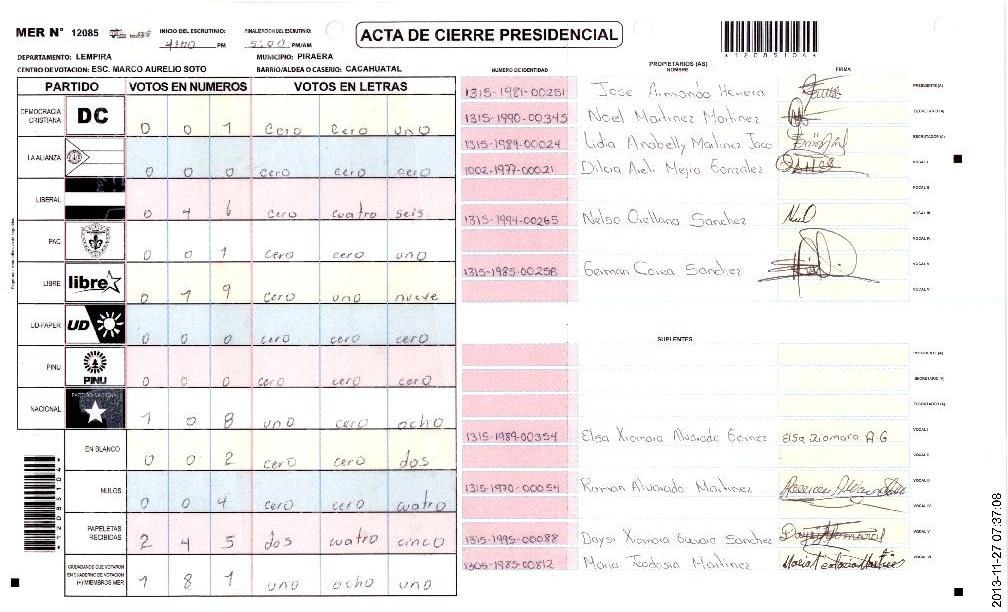 MER N° 12085
INICIO DEL ESCRUTINIO: 4:00 PM
FINALIZACION DEL ESCRUTINIO: 5:00 PM/AM
ACTA DE CIERRE PRESIDENCIAL
*12085104*
DEPARTAMENTO: LEMPIRA
MUNICIPIO: PIRAERA
CENTRO DE VOTACION: ESC. MARCO AURELIO SOTO
BARRIO/ALDEA O CASERIO: CACAHUATAL
PARTIDO VOTOS EN NUMEROS VOTOS EN LETRAS
DEMOCRACIA CRISTIANA DC 0 0 1 cero cero uno
LA ALIANZA 0 0 0 cero cero cero
LIBERAL 0 4 6 cero cuatro seis
PAC 0 0 1 cero cero uno
LIBRE libre 0 1 9 cero uno nueve
UD-FAPER UD 0 0 0 cero cero cero
PINU PINU 0 0 0 cero cero cero
NACIONAL PARTIDO NACIONAL 1 0 8 uno cero ocho
EN BLANCO 0 0 2 cero cero dos
NULOS 0 0 4 cero cero cuatro
PAPELETAS RECIBIDAS 2 4 5 dos cuatro cinco
CIUDADANOS QUE VOTARON EN CUADERNO DE VOTACION (+) MIEMBROS MER 1 8 1 uno ocho uno
*12085104*
PROPIETARIOS (AS)
NUMERO DE IDENTIDAD NOMBRE FIRMA
1315-1981-00251 Jose Armando Herrera PRESIDENTE (A)
1315-1990-00345 Noel Martinez Martinez SECRETARIO (A)
1315-1989-00024 Lidia Anabelly Martinez ESCRUTADOR (A)
1002-1977-00021 Dilcia Areli Mejia Gonzalez VOCAL I
VOCAL II
1315-1994-00265 Nelso Orellana Sanchez VOCAL III
VOCAL IV
1315-1985-00258 German Sanchez VOCAL V
VOCAL VI
SUPLENTES
PRESIDENTE (A)
SECRETARIO (A)
ESCRUTADOR (A)
1315-1989-00354 Elsa Xiomara Alvarado Gomez Elsa Xiomara A.G VOCAL I
VOCAL II
1315-1970-00054 Roman Alvarado Martinez VOCAL III
VOCAL IV
1315-1995-00088 Daysi Xiomara Sanchez VOCAL V
1305-1985-00812 Maria Teodosia Martinez Maria Teodocia Martinez VOCAL VI
2013-11-27 07:37:08